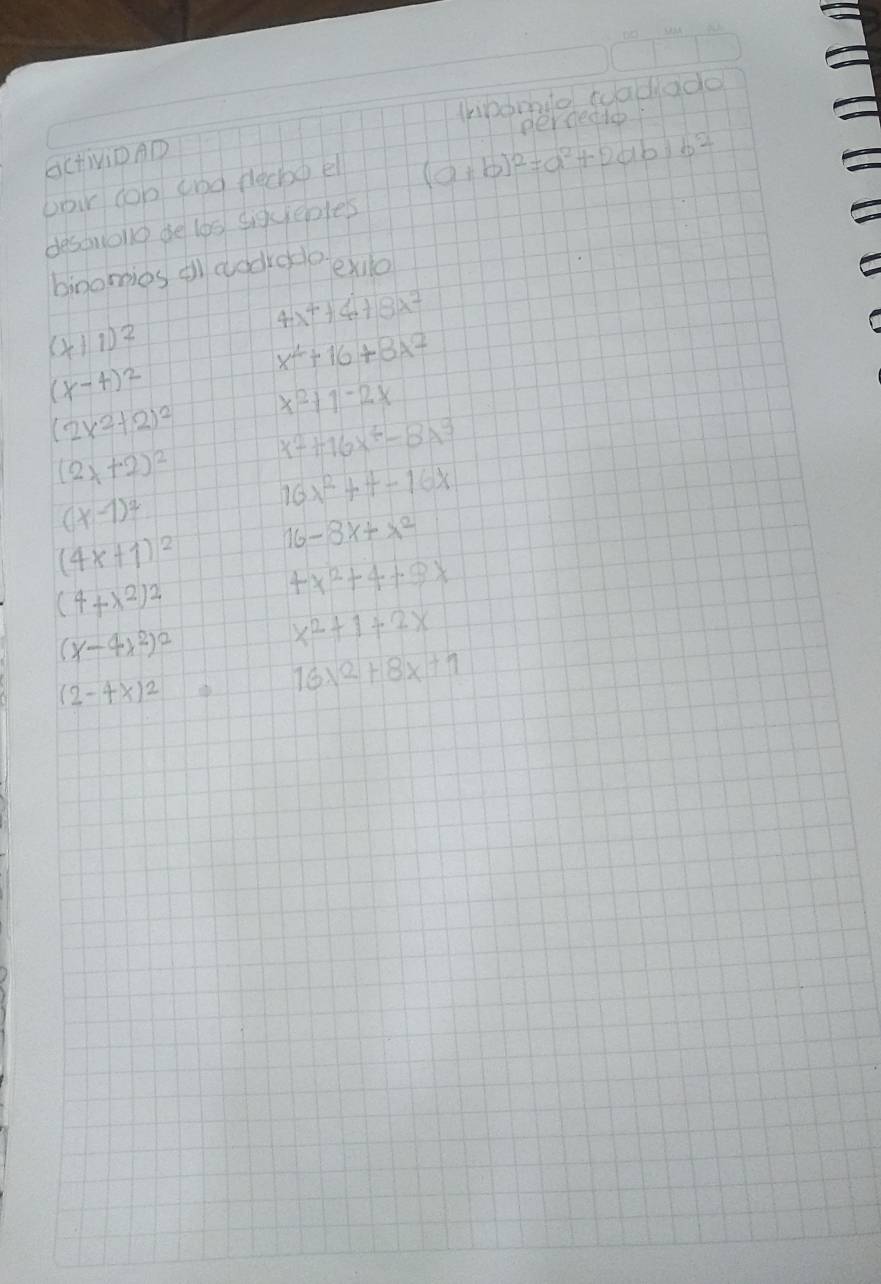 trinomio cuadrado
perfecto
(a+b)²=a²+2ab+b²
actiViDAD
unir con una flecha el
desarrollo de los siguientes
binomios al cuadrado. exito
(x+1)² 4x⁴+4+8x²
(x-4)² x⁴+16+8x²
(2x²+2)² x²+1-2x
(2x+2)² x²+16x⁴-8x³
(x-1)² 16x²+4-16x
(4x+1)² 16-8x+x²
(4+x²)² 4x²+4+8x
(x-4x²)² x²+1+2x
(2-4x)² 16x²+8x+1